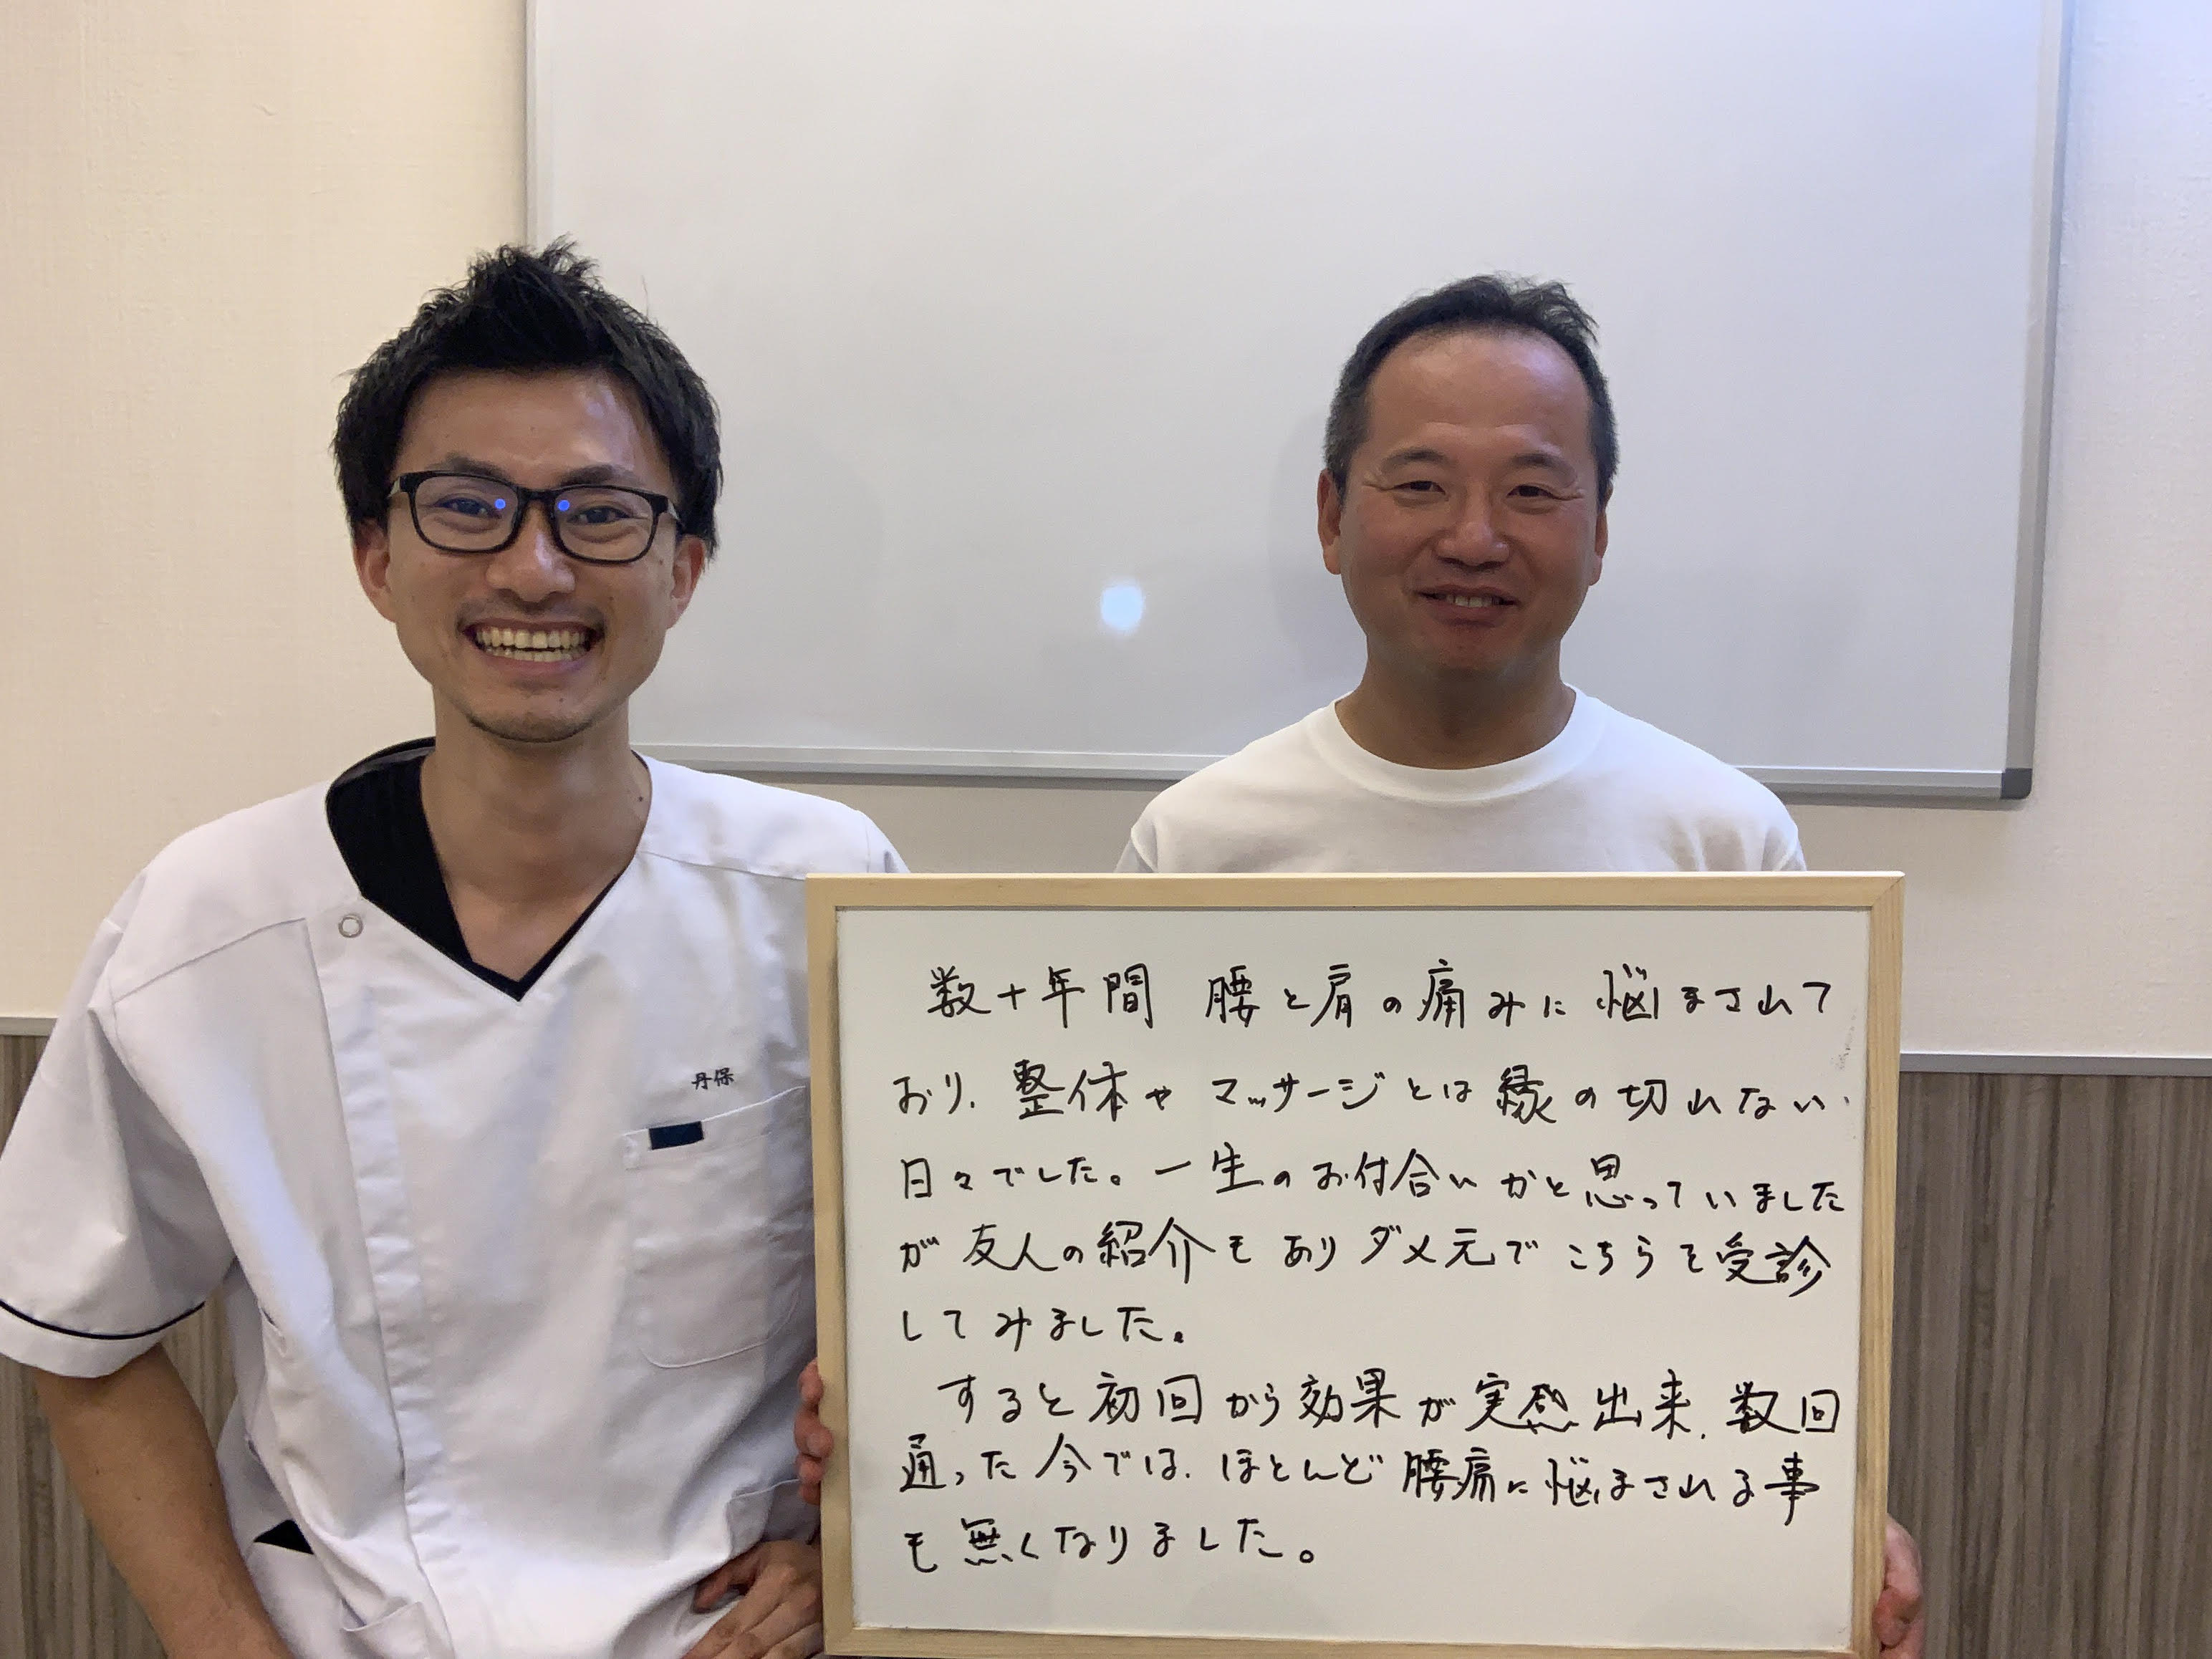 丹保
数十年間 腰と肩の痛みに悩まされて
おり、整体や マッサージとは縁の切れない
日々でした。一生のお付合いかと思っていました
が友人の紹介もありダメ元でこちらを受診
してみました。
すると初回から効果が実感出来、数回
通った今では、ほとんど腰痛に悩まされる事
も無くなりました。